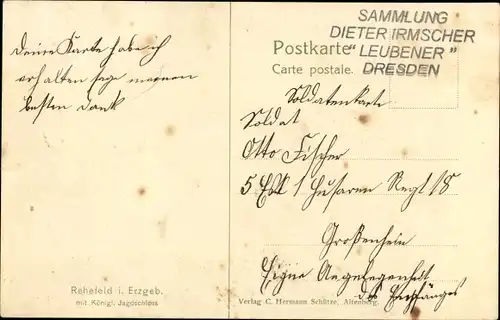 Deine Karte habe ich
erhalten sage meinen
besten Dank
Rehefeld i. Erzgeb.
mit Königl. Jagdschloss
SAMMLUNG
DIETER IRMSCHER
"LEUBENER"
DRESDEN
Postkarte
Carte postale.
Soldatenkarte
Soldat
Otto Fischer
5 Esk 1 Husaren Regt 18
Großenhein
Eigne Angelegenheit
des Empfänges
Verlag C. Hermann Schütze, Altenberg.